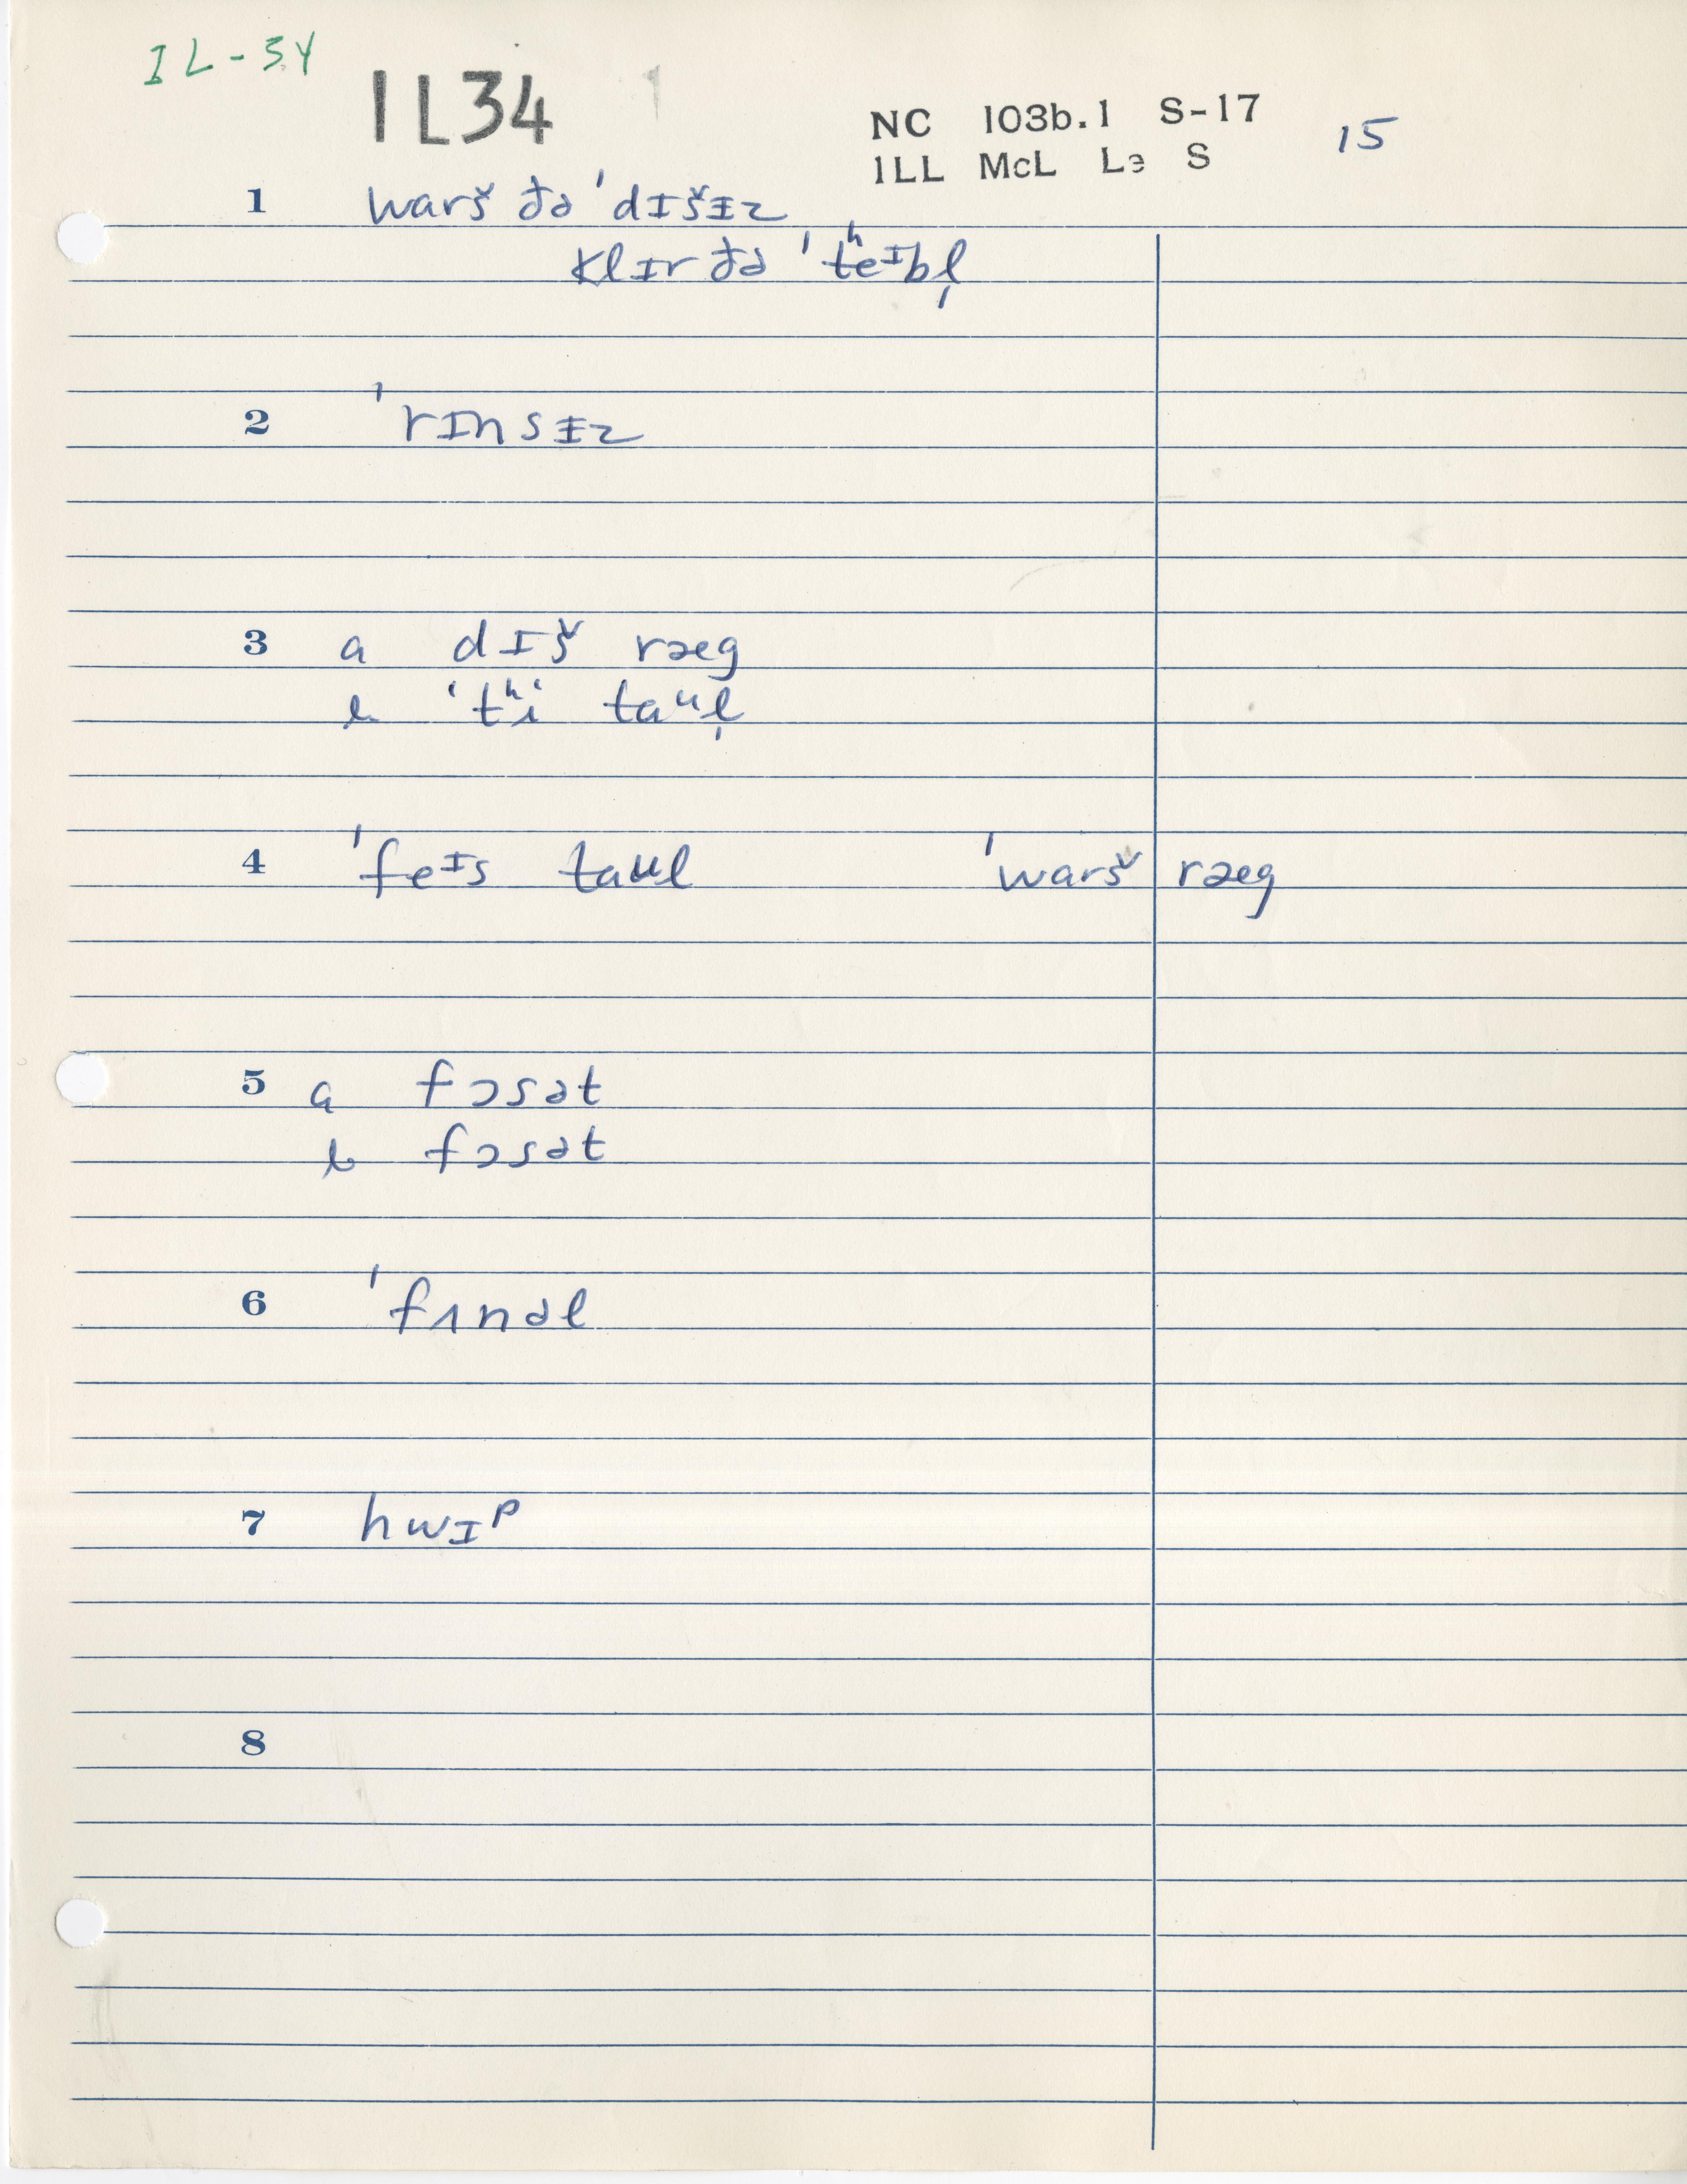 IL-34
IL34 1
NC 103b.1 S-17 15
ILL McL Lɘ S
1 warš ðə ˈdɪšᵻz
klɪr ðə ˈtʰeɪbl̩
2 ˈrɪnsᵻz
3 a dɪš ræg
b ˈtʰi taᵘl̩
4 ˈfeᶦs taᵘl ˈwarš ræg
5 a fɔsət
b fɔsət
6 ˈfʌnəl
7 hwɪᵖ
8